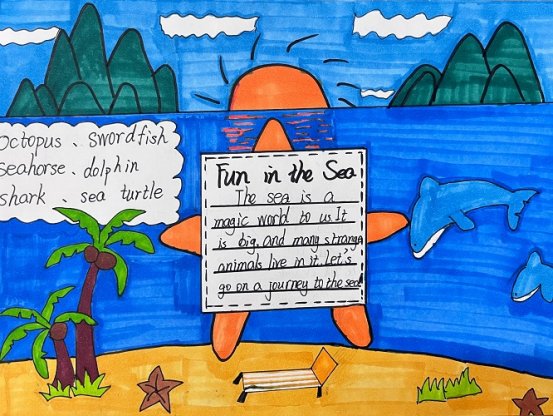 octopus、swordfish
seahorse、dolphin
shark、sea turtle
Fun in the Sea
The sea is a
magic world to us.It
is big, and many strange
animals live in it. Let's
go on a journey to the sea!